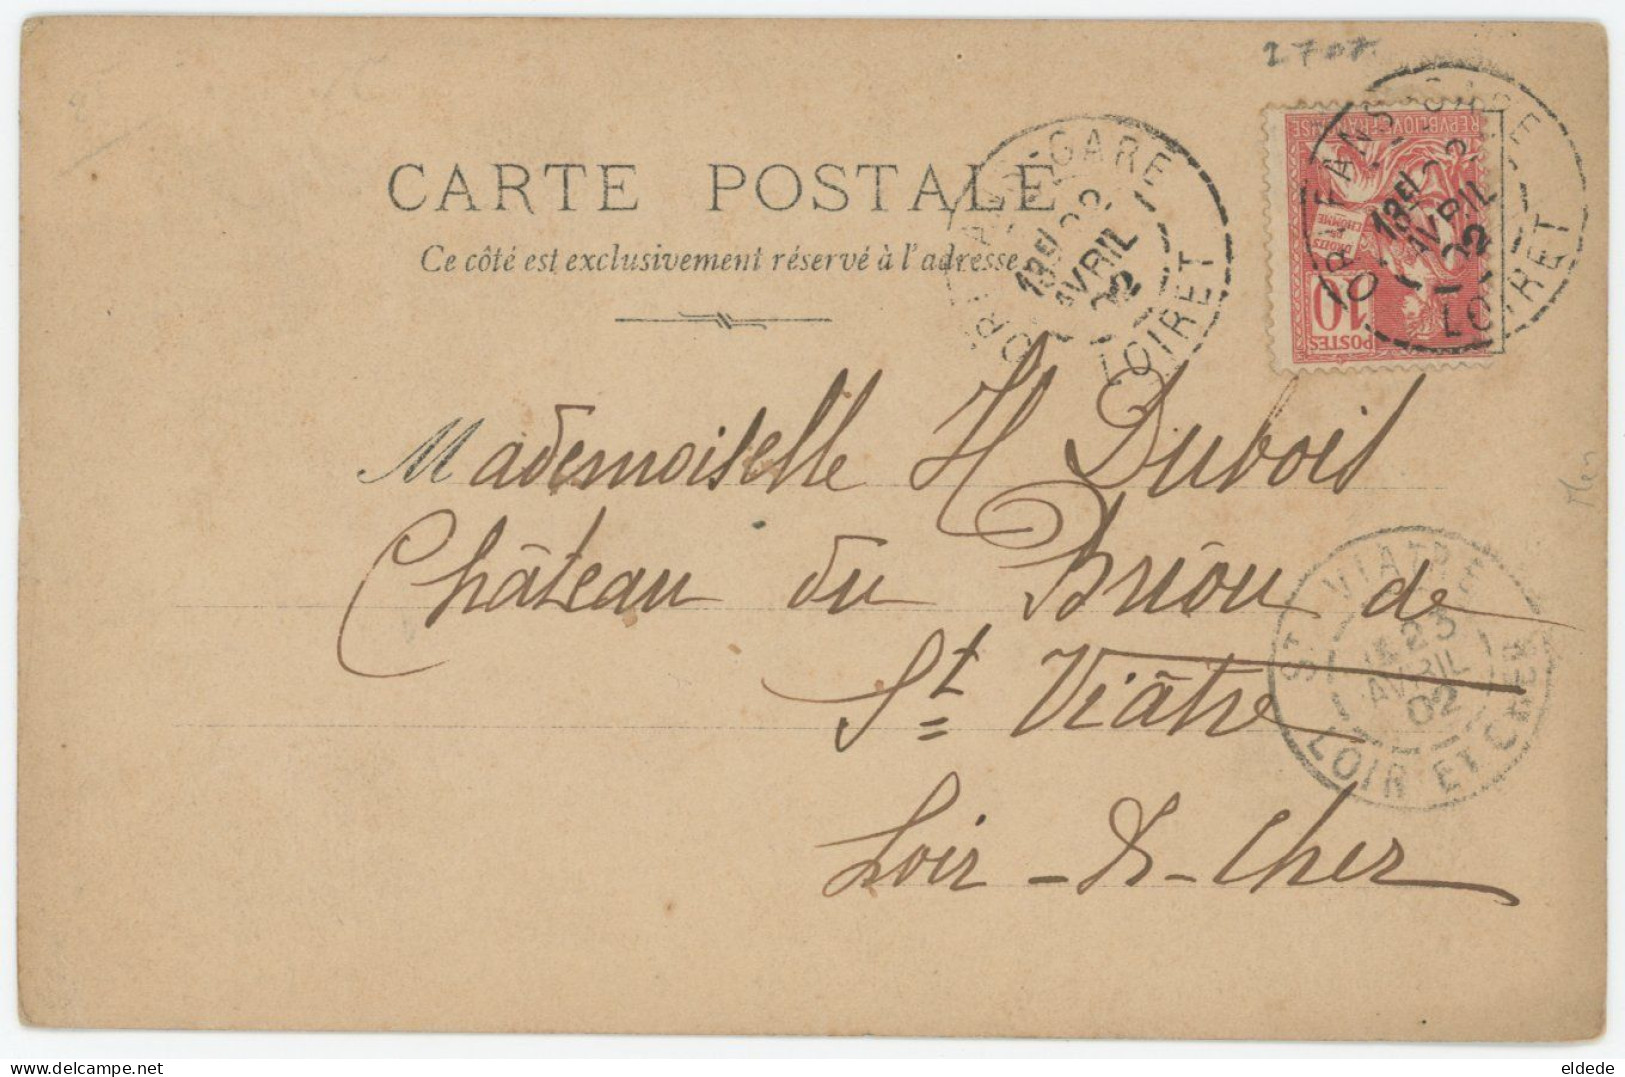 2707
CARTE POSTALE
Ce côté est exclusivement réservé à l'adresse
ORLEANS-GARE
13E/22
AVRIL
02
LOIRET
ORLEANS-GARE
13E/22
AVRIL
02
LOIRET
REPVBLIQVE FRANÇAISE
DROITS DE L'HOMME
10
POSTES
Mademoiselle H Dubois
Château du Briou de
St Viâtre
Loir-&-Cher
ST VIATRE
23
AVRIL
02
LOIR ET CHER
eldede